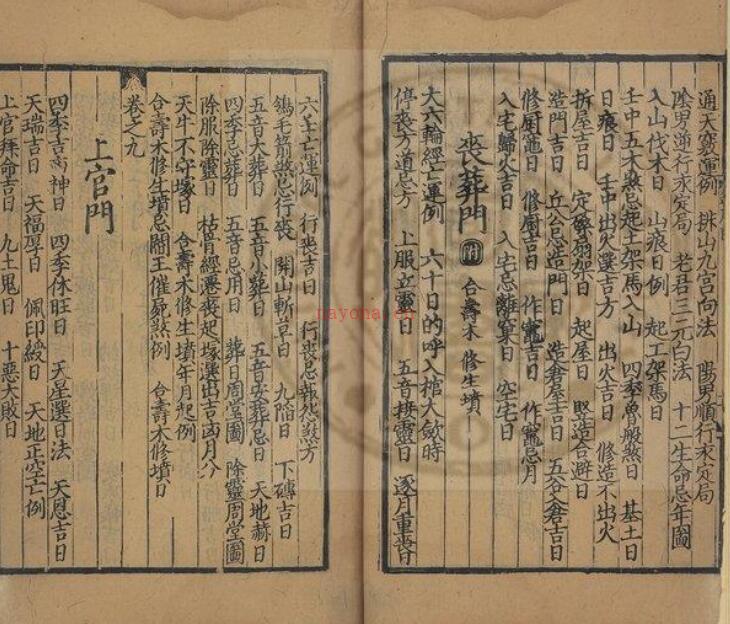 通天竅運例 撥山九宮向法 陽男順行求定局
陰男逆行求定局 老君三元白法 十二生命忌年圖
入山伐木日 山痕日例 起工架馬日
壬中五木煞忌起土架馬入山 四季魯般煞日 基土日
日痕日 壬中出火選吉方 出火吉日 修造不出火
拆屋吉日 定磉扇架日 起屋日 豎造合避日
造門吉日 丘公忌造門日 造倉屋吉日 五穀入倉吉日
修厨竈日 修厨吉日 作竈吉日 作竈忌月
入宅歸火吉日 入宅忌離窠日 空宅日
喪葬門 附 合壽木 修生墳
大六輪經亡運例 六十日的呼入棺大斂時
停喪方道忌方 上服立靈日 五音接靈日 逐月重喪日
六壬亡運例 行喪吉日 行喪忌報怨煞方
鵶毛箭煞忌行喪 開山斬草日 九焰日 下磚吉日
五音大葬日 五音小葬日 五音安葬忌日 天地赫日
四季忌葬日 五音忌用日 葬日周堂圖 除靈周堂圖
除服除靈日 枯骨經遷喪起塚選出吉凶月分
天牛不守塚日 合壽木修生墳年月起例
合壽木修生墳忌閻王催屍煞例 合壽木修墳日
卷之九
上官門
四季吉高神日 四季休旺日 天星選日法 天恩吉日
天瑞吉日 天福厚日 佩印綬日 天地正空亡例
上官拜命吉日 九土鬼日 十惡大敗日
nayona.cn